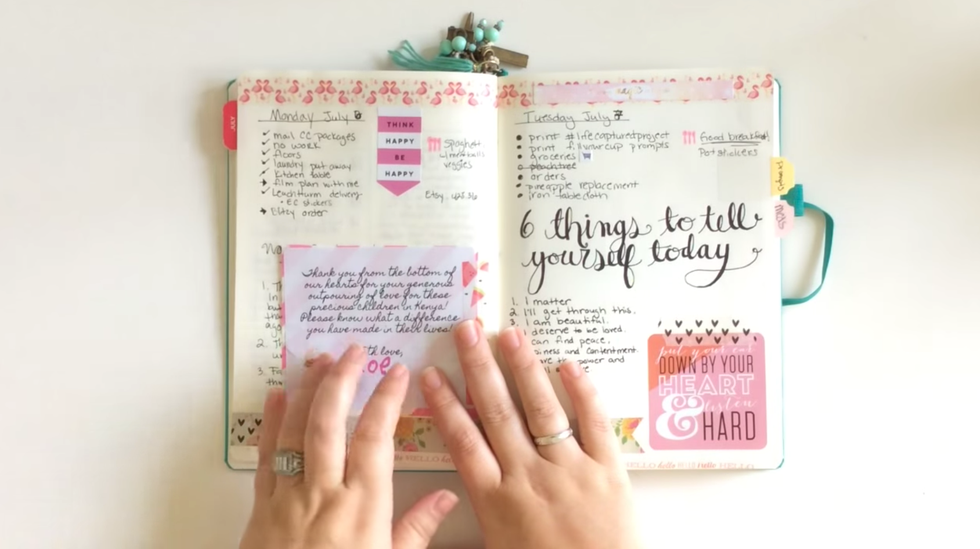 JULY
Monday July 6
mail CC packages
no work
floors
laundry put away
kitchen table
film plan with me
Leuchtturm delivery
• EC stickers
Etsy order
THINK
HAPPY
BE
HAPPY
Spaghetti
meatballs
veggies
Etsy
No
1. Th
In
but
tha
2. Th
3. Fi
th
Thank you from the bottom of
our hearts for your generous
outpouring of love for these
precious children in Kenya!
Please know what a difference
you have made in their lives!
th love,
oe
Tuesday July 7
print #lifecapturedproject
print fillyourcup prompts
groceries
peachtree
orders
pineapple replacement
iron tablecloth
Good breakfast
Potstickers
6 things to tell
yourself today
1. I matter
2. I'll get through this.
3. I am beautiful.
I deserve to be loved.
can find peace.
iness and contentment.
ve the power and
put your ear
DOWN BY YOUR
HEART
& listen
HARD
HELLO hello HELLO hello HELLO